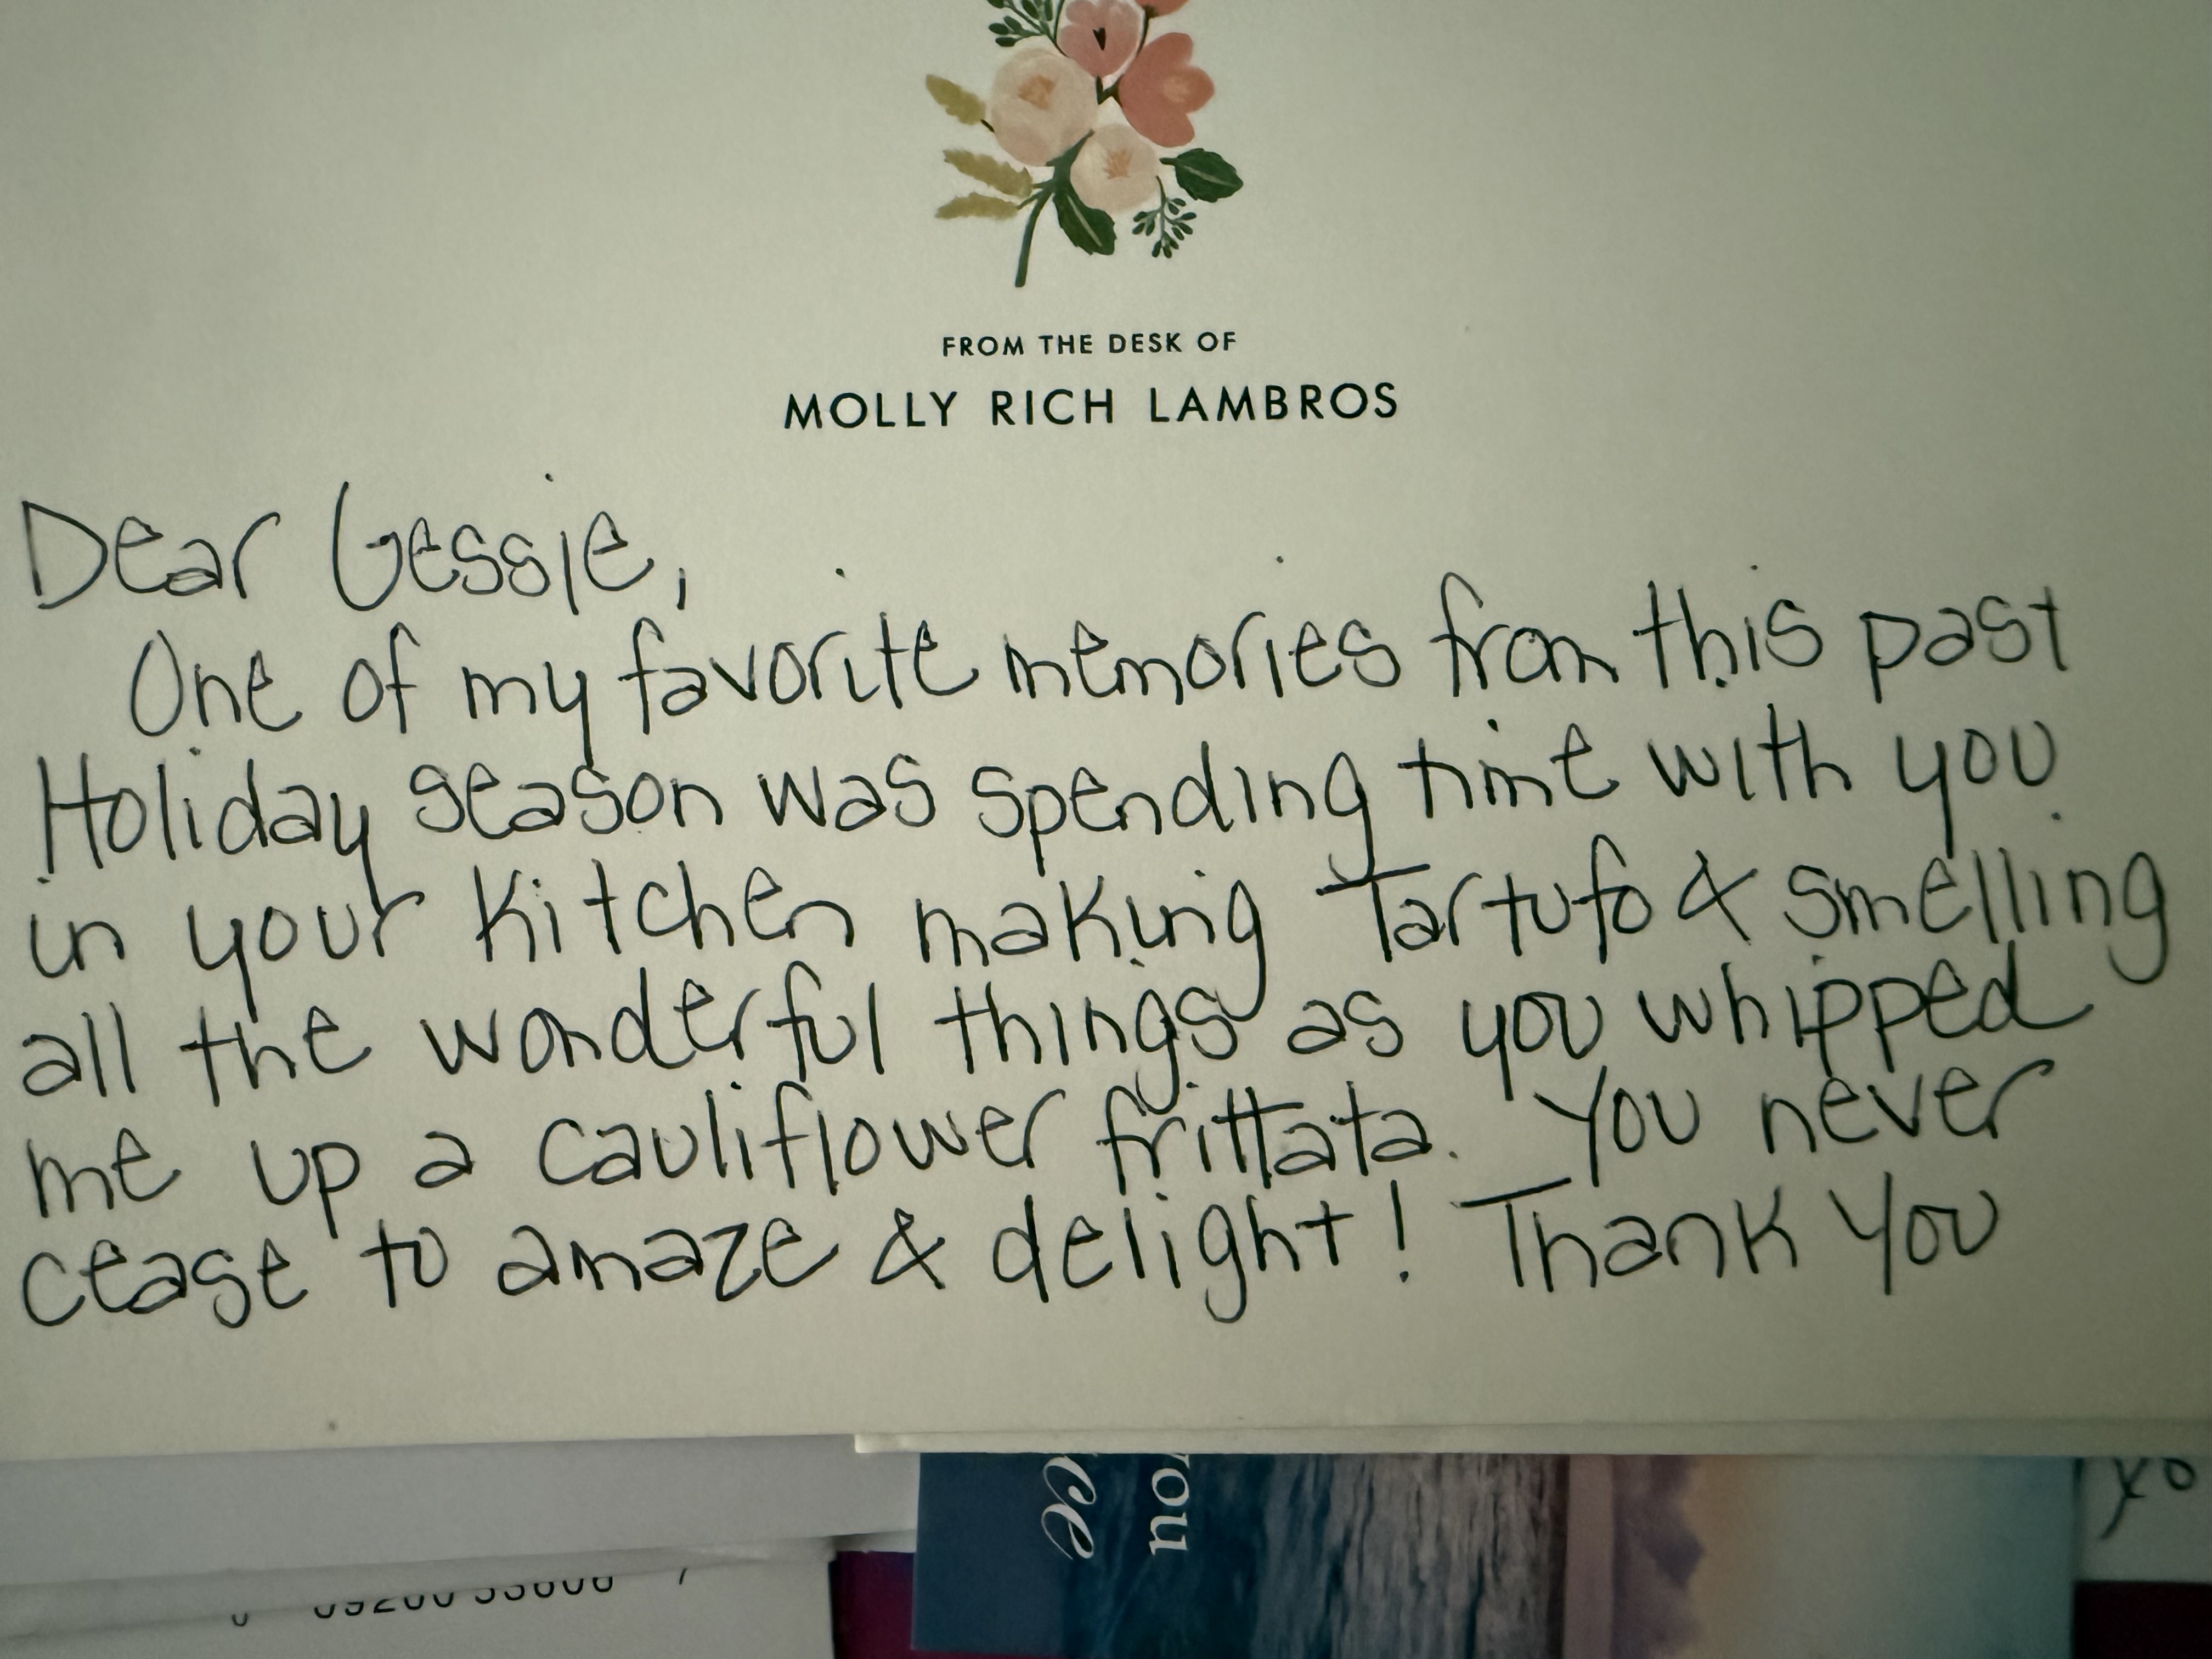 FROM THE DESK OF
MOLLY RICH LAMBROS
Dear Gessie,
One of my favorite memories from this past
Holiday season was spending time with you
in your kitchen making Tartufo & smelling
all the wonderful things as you whipped
me up a cauliflower frittata. You never
cease to amaze & delight! Thank You